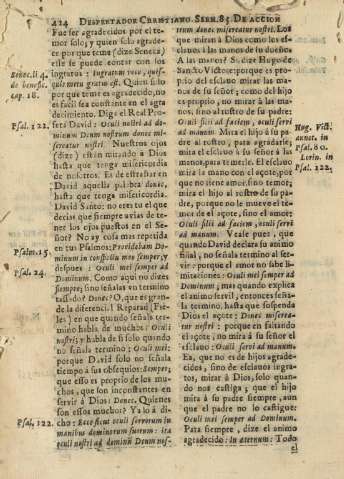 424 DESPERTADOR CHRISTIANO. SERM. 85 DE ACCION
Fue ser agradecidos por el te-
mor solo, y quien solo agrade-
ce por que teme (dize Seneca)
esse se puede contar con los
ingratos: Ingratum voco, quis-
quis metu gratus est. Quien solo
por que teme es agradecido, no
es facil sea constante en el agra-
decimiento. Diga el Real Pro-
feta David: Oculi nostri ad do-
minum Deum nostrum donec mi-
sereatur nostri. Nuestros ojos
(dize) estàn mirando à Dios
hasta que tenga misericordia
de nosotros. Es de estrañar en
David aquella palabra donec,
hasta que tenga misericordia.
David Santo: no eres tu el que
decias que siempre avias de te-
ner los ojos puestos en el Se-
ñor? No ay cosa mas repetida
en tus Psalmos: Providebam Do-
minum in conspectu meo semper, y
despues: Oculi mei semper ad
Dominum. Como aqui no dizes
siempre, sino señalas un termino
tassado? Donec? O, que es gran-
de la diferencia! Reparad (Fie-
les) en que quando señala ter-
mino habla de muchos: Oculi
nostri; y habla de sì solo quando
no señala termino; Oculi mei:
porque David solo no señala
tiempo à sus obsequios: Semper;
que esso es proprio de los mu-
chos, que son inconstantes en
servir à Dios: Donec. Quienes
son essos muchos? Ya lo à di-
cho: Ecce sicut oculi servorum in
manibus dominorum suorum: ita
oculi nostri ad dominum Deum nos-
Senec. li 4.
de benefic.
cap. 18.
Psal. 122.
Psalm. 15.
Psal. 24.
Psal. 122.
trum donec misereatur nostri. Los
que miran à Dios como los es-
clavos à las manos de su dueño.
A las manos? Si, dize Hugo de
Sancto Victore: porque es pro-
prio del esclavo mirar las ma-
nos de su señor; como del hijo
es proprio, no mirar à las ma-
nos, sino al rostro de su padre:
Oculi filii ad faciem, oculi servi
ad manum. Mira el hijo à su pa-
dre al rostro, para agradarle;
mira el esclavo à su señor à las
manos, para temerle. El esclavo
mira la mano con el açote, por
que no tiene amor, sino temor;
mira el hijo al rostro de su pa-
dre, porque no le mueve el te-
mor de el açote, sino el amor:
Oculi filii ad faciem, oculi servi
ad manum. Veale pues, que
quando David declara su animo
filial, no señala termino al ser-
vir; porque el amor no sabe li-
mitaciones: Oculi mei semper ad
Dominum, mas quando explica
el animo servil, entonces seña-
la termino, hasta que suspenda
Dios el açote: Donec miserea-
tur nostri: porque en faltando
el açote, no mira à su señor el
esclavo: Oculi servi ad manum.
Ea, que no es de hijos agrade-
cidos, sino de esclavos ingra-
tos, mirar à Dios, solo quan-
do nos castiga; que el hijo
mira à su padre siempre, aun
que el padre no lo castigue:
Oculi mei semper ad Dominum.
Para siempre, dize el animo
agradecido: In æternum: Todo
el
Hug. Vict.
annot. in
Psal. 80.
Lorin. in
Psal. 122.